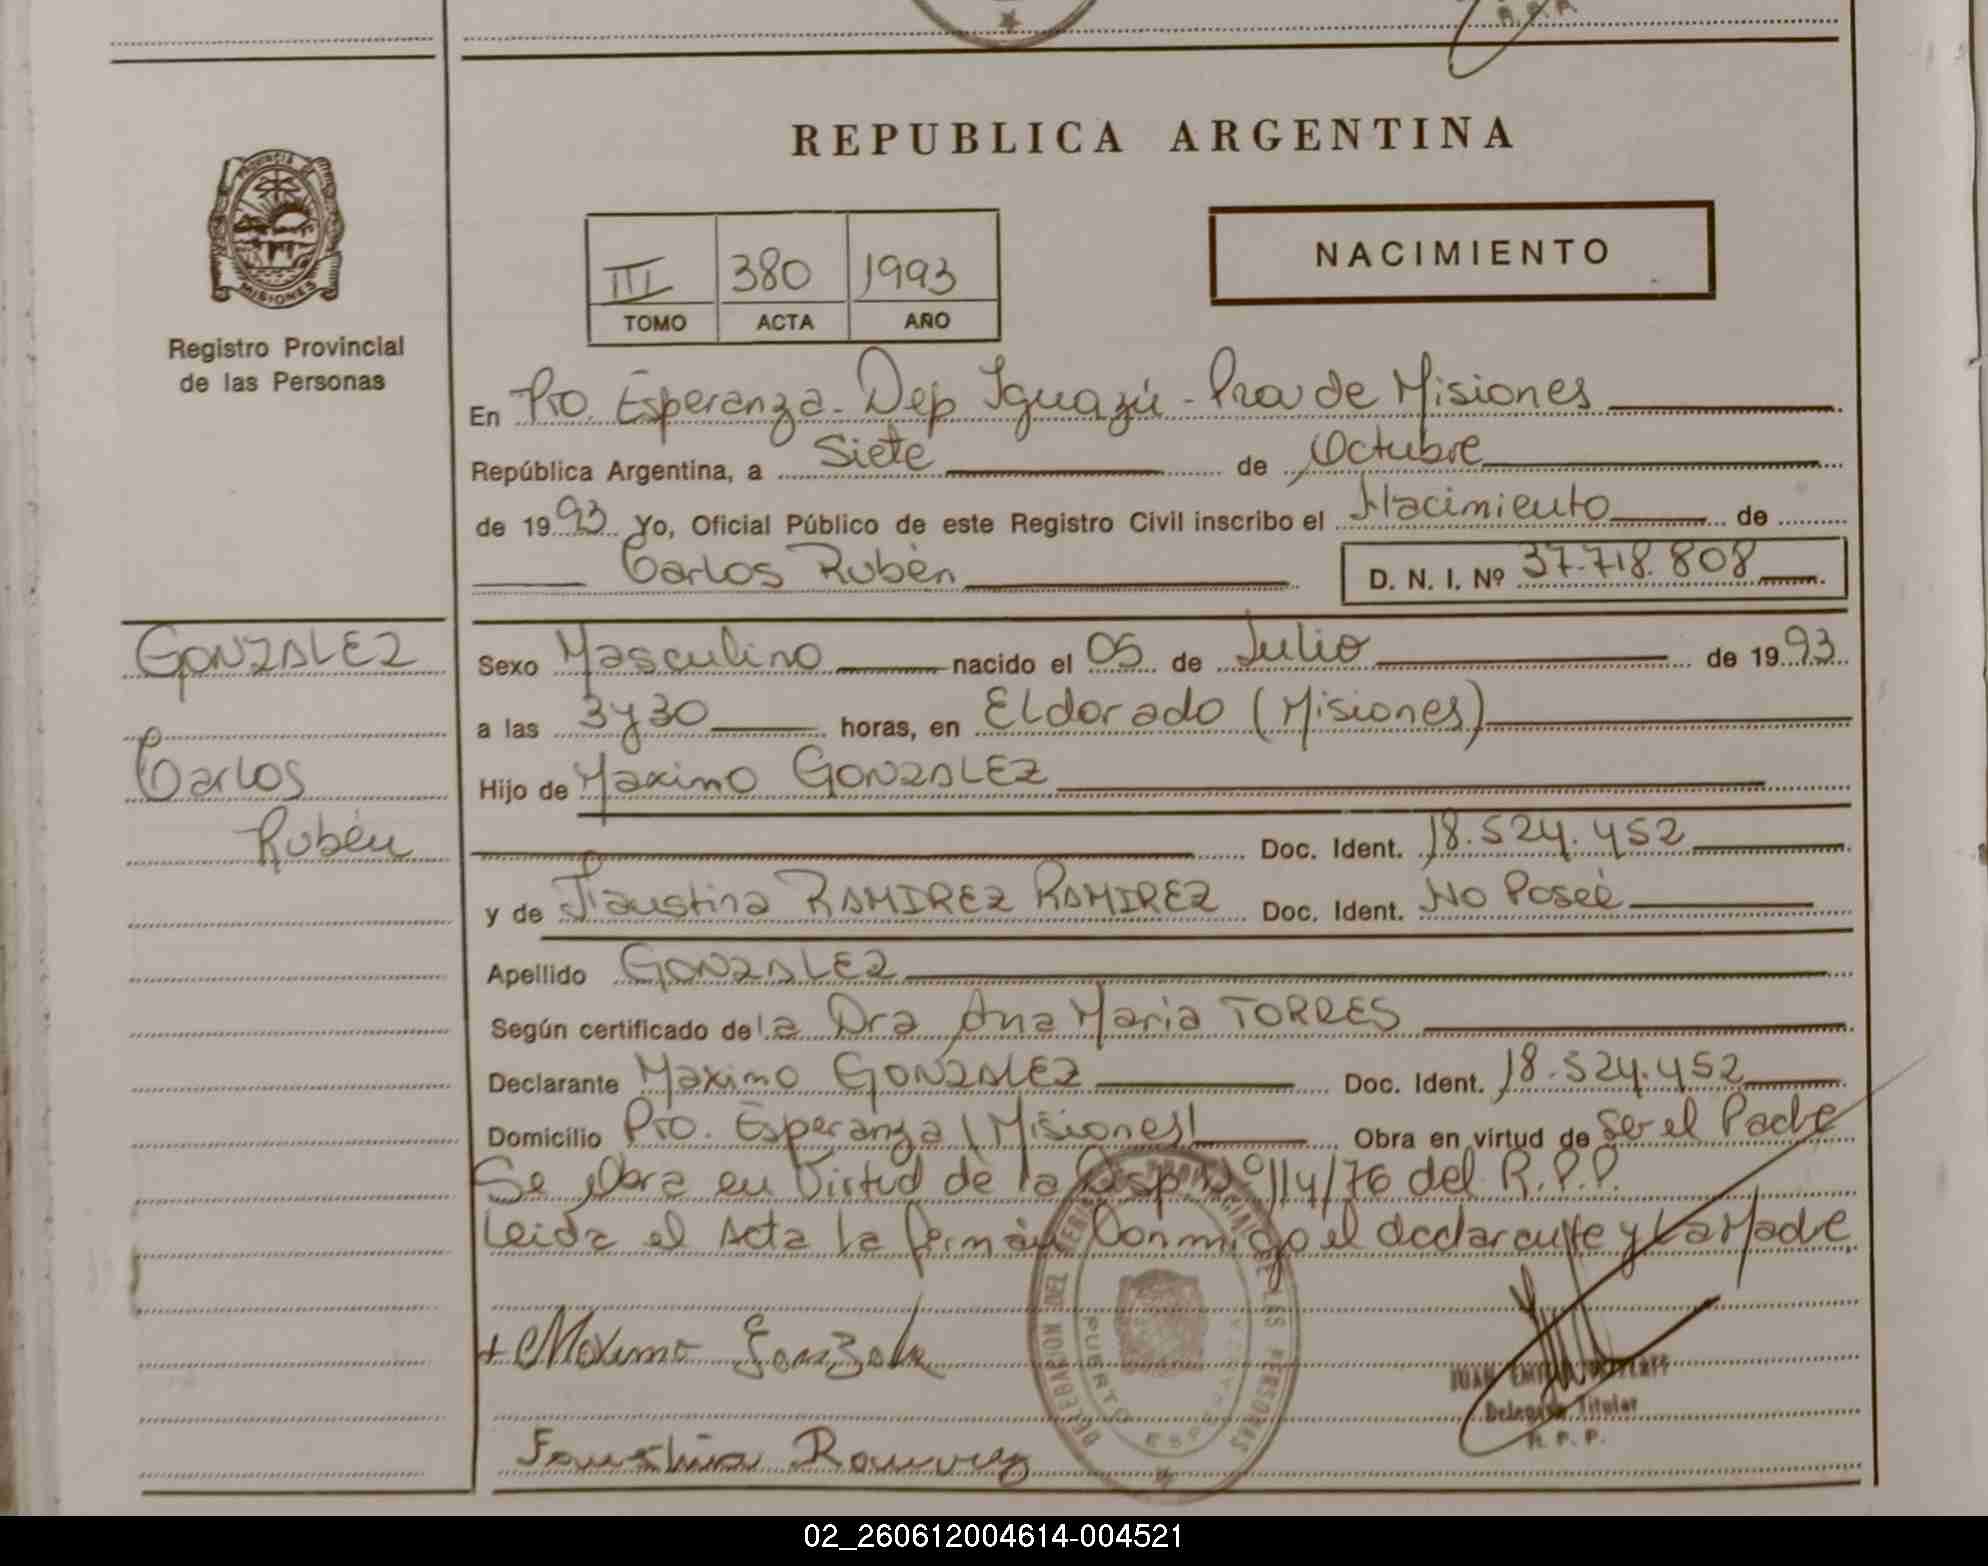 REPUBLICA ARGENTINA
PROVINCIA DE
MISIONES
Registro Provincial
de las Personas
III 380 1993
TOMO ACTA AÑO
NACIMIENTO
En Pto. Esperanza - Dep Iguazú - Pcia de Misiones
República Argentina, a Siete de Octubre
de 1993 Yo, Oficial Público de este Registro Civil inscribo el Nacimiento de
Carlos Rubén D. N. I. Nº 37.718.808
GONZALEZ
Carlos
Rubén
Sexo Masculino nacido el 05 de Julio de 1993
a las 3 y 30 horas, en Eldorado (Misiones)
Hijo de Maximo GONZALEZ
Doc. Ident. 18.524.452
y de Faustina RAMIREZ RAMIREZ Doc. Ident. No Poseé
Apellido GONZALEZ
Según certificado de la Dra Ana Maria TORRES
Declarante Maximo GONZALEZ Doc. Ident. 18.524.452
Domicilio Pto. Esperanza (Misiones) Obra en virtud de ser el Padre
Se Obra en Virtud de la Disp. Nº 114/76 del R.P.P.
Leida el Acta la firman Conmigo el declarante y La Madre
+ Maximo Gonzale
Faustina Ramirez
DELEGACION DEL PROVINCIAL DE LAS PERSONAS
PUERTO ESPERANZA
JUAN
Delegado Titular
R. P. P.
02_260612004614-004521